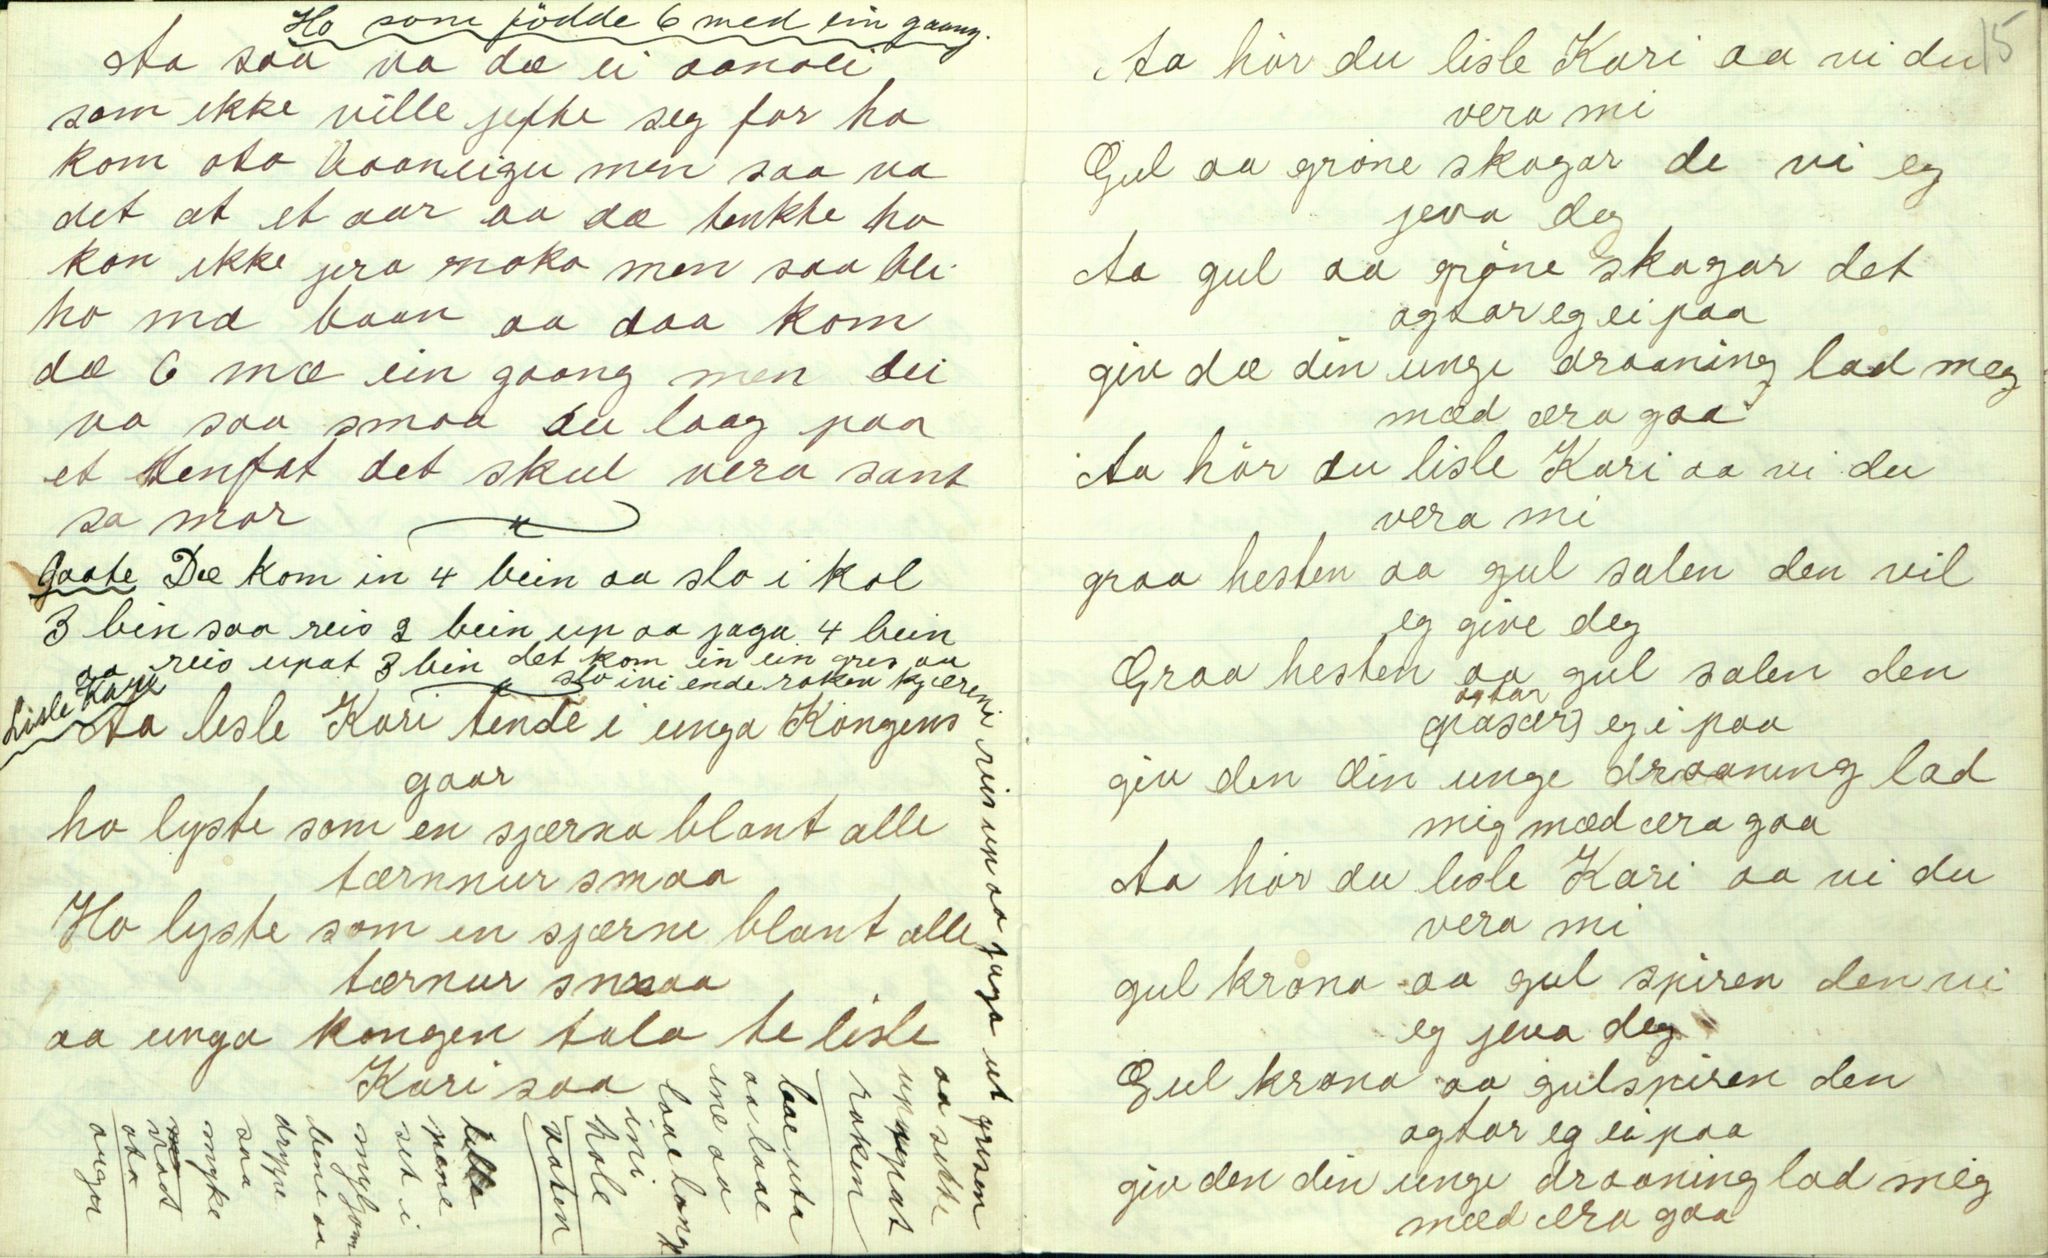 Ho som födde 6 med ein gaang.
Aa saa va dæ ei aanaei
som ikke ville jefte seg for ho
kom ota baaneigu men saa va
det at et aar aa dæ tenkte ho
kan ikke jera noko men saa blei
ho mæ baan aa daa kom
dæ 6 mæ ein gaang men dei
va saa smaa du laag paa
et tenfat det skul vera sant
sa mor
Gaate Dæ kom in 4 bein aa slo i kol
3 bein saa reis 2 bein up aa jaga 4 bein
aa reis upat 3 bein det kom in ein gris aa
slo ivi ende roken kjæren
i reis up aa jaga ut grisen
aa sette
uppat
roken
Lisle Kari
Aa lisle Kari tende i unga Kongens
gaar
ho lyste som en sjærna blant alle
tærnnur smaa
Ho lyste som en sjærne blant alle
tærnur smaa
aa unga kongen tala te lisle
Kari saa
baae uta
aa laae
ine aa
laae lang
ini
hole
vaaten
lille
pene
set i
myljom
bene aa
dryppe
saa
myke
vaat
ota
augu
15
Aa hör du lisle Kari aa vi du
vera mi
Gul aa gröne skogar de vi eg
jeva deg
Aa gul aa gröne skogar det
agtar eg ei paa
giv dæ din unge draaning lad meg
mæd æra gaa
Aa hör du lisle Kari aa vi du
vera mi
graa hesten aa gul salen den vil
eg give deg
Graa hesten aa gul salen den
agtar
(pasær) eg i paa
giv den din unge draaning lad
mig mæd æra gaa
Aa hör du lisle Kari aa vi du
vera mi
gul krona aa gul spiren den vi
eg jeva deg
Gul krona aa gulspiren den
agtar eg ei paa
giv den din unge draaning lad mig
mæd æra gaa